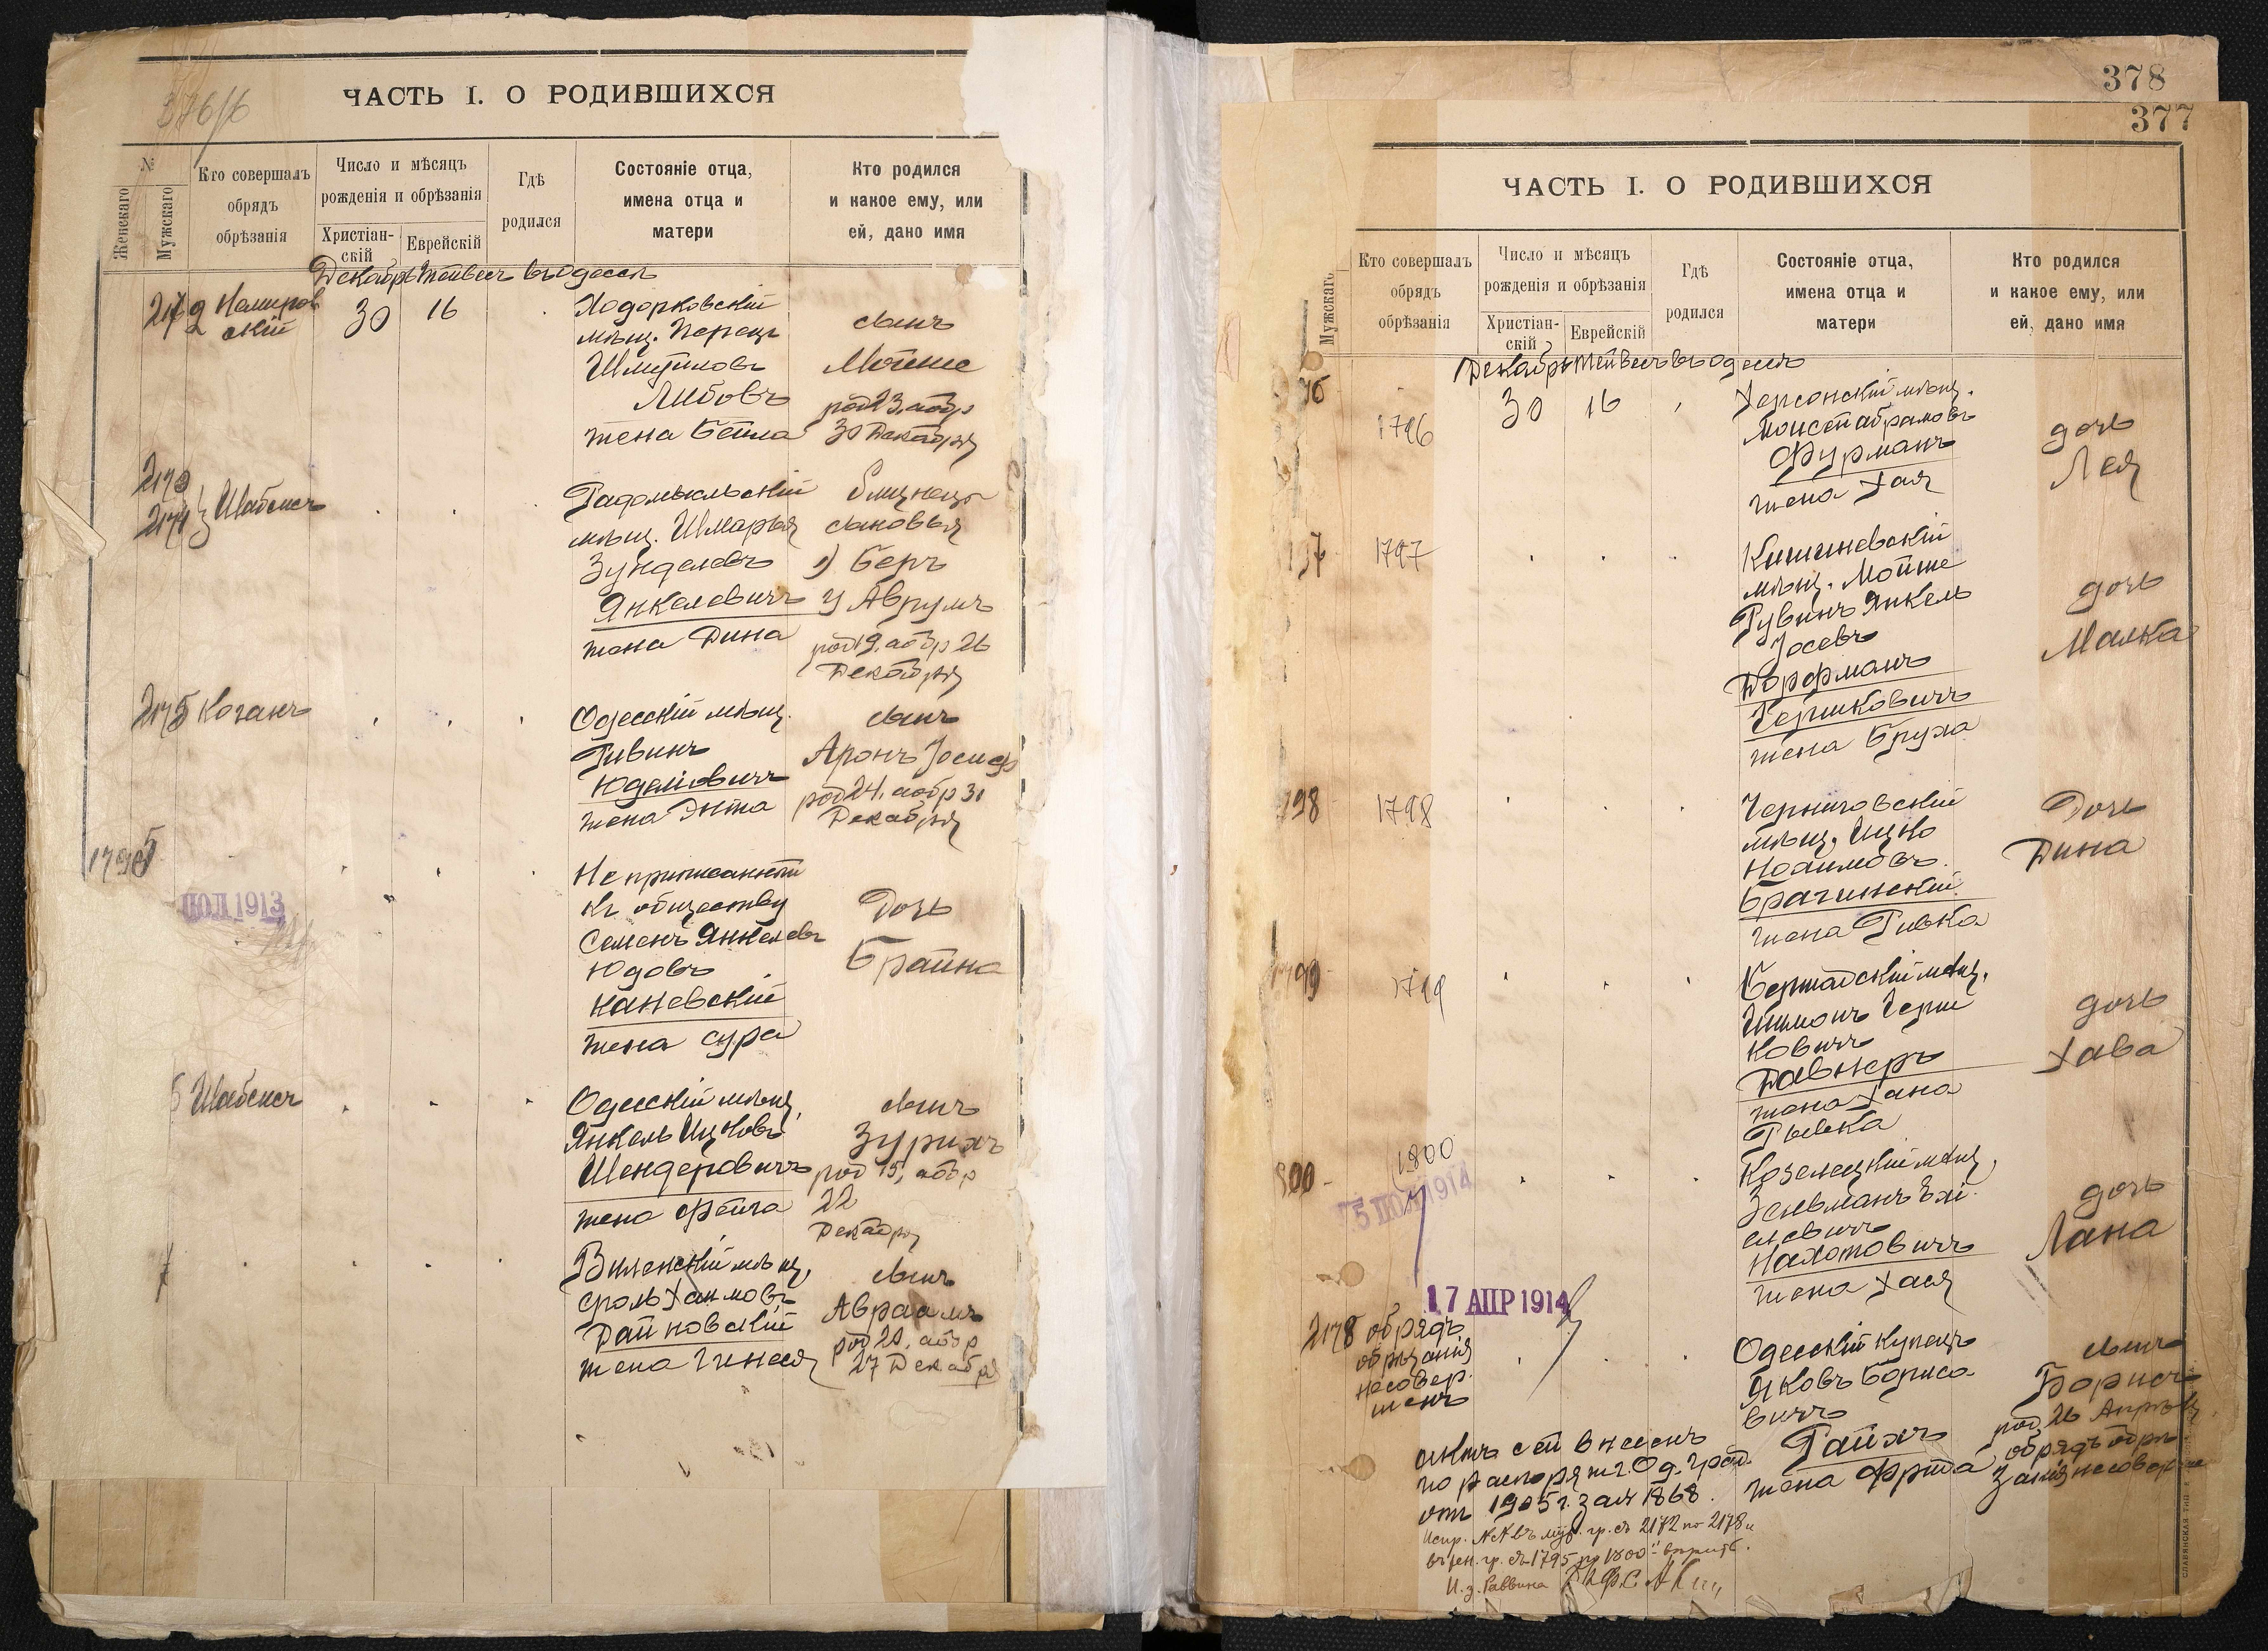 376/6
ЧАСТЬ I. О РОДИВШИХСЯ
№
Женскаго
Мужскаго
Кто совершалъ
обрядъ
обрѣзанія
Число и мѣсяцъ
рожденія и обрѣзанія
Христіан-
скій
Еврейскій
Гдѣ
родился
Состояніе отца,
имена отца и
матери
Кто родился
и какое ему, или
ей, дано имя
Декабрь Тейвесъ въ Одессѣ
2172 Немиров
скій
30 16
Ходорковскій
мѣщ. Перецъ
Шмуйловъ
Либовъ
жена Бейла
сынъ
Мойше
род 23, аобр
30 Декабря
2173
2174 Шабсисъ
Радомысльскій
мѣщ. Шмарья
Зунделевъ
Янкелевичъ
жена Дина
близнецы
сыновья
1) Беръ
2) Аврумъ
род 19, аобр 26
Декабря
2175 Коганъ
Одесскій мѣщ.
Рувинъ
Юделіовичъ
жена Энта
сынъ
Аронъ Іосифъ
род 24, аобр 31
Декабря
1795
ІЮЛ 1913
Не приписанный
къ обществу
Семенъ Янкелевъ
Юдовъ
Каневскій
жена Сура
Дочь
Брайна
6 Шабсисъ
Одесскій мѣщ.
Янкель Ицковъ
Шендеровичъ
жена Фейга
сынъ
Зурихъ
род 15, аобр
22
Декабря
Виленскій мѣщ.
Сроль Хаимовъ
Дайновскій
жена Гинеся
сынъ
Авраамъ
род 20, аобр
27 Декабря
378
377
ЧАСТЬ I. О РОДИВШИХСЯ
Мужскаго
Кто совершалъ
обрядъ
обрѣзанія
Число и мѣсяцъ
рожденія и обрѣзанія
Христіан-
скій
Еврейскій
Гдѣ
родился
Состояніе отца,
имена отца и
матери
Кто родился
и какое ему, или
ей, дано имя
Декабрь Тейвесъ въ Одессѣ
96
1796
30 16
Херсонскій мѣщ.
Моисей Абрамовъ
Фурманъ
жена Хая
дочь
Лея
1797
Кишиневскій
мѣщ. Мойше
Рувинъ Янкель
Іосевъ
Дорфманъ
Гершковичъ
жена Бруха
дочь
Малка
798
1798
Черниговскій
мѣщ. Ицко
Нохимовъ
Брагинскій
жена Ривка
Дочь
Дина
1799
1799
Бершадскій мѣщ.
Шимонъ Герш
ковичъ
Давнеръ
жена Хана
Рывка
дочь
Хава
800
1800
5 ІЮЛ 1914
Козелецкій мѣщ.
Зельманъ Элі
елевичъ
Нахотовичъ
жена Хася
дочь
Хана
17 АПР 1914
2178 обрядъ
обрѣзанія
несовер
шенъ
Одесскій купецъ
Яковъ Бориса
вичъ
Райхъ
жена Фрида
сынъ
Борисъ
род 26 Апрѣля
обрядъ обрѣ
занія несоверше
актъ сей внесенъ
по распоряж г. Од. Град.
отъ 1905 г. за № 1868.
Испр. №№ въ муж. гр. съ 2172 по 2178 и
въ жен. гр. съ 1795 по 1800
И. з. Раввина